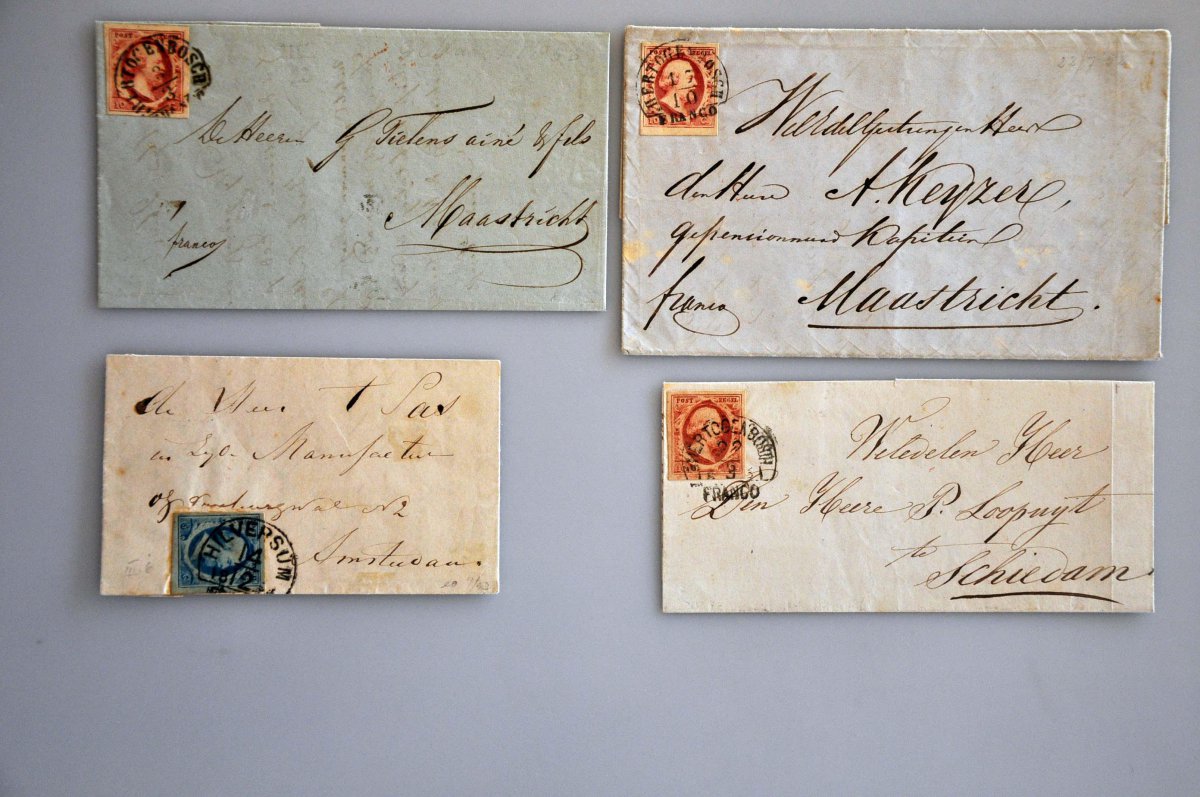 POST
HERTOGENBOSCH
De Heeren G Tielens ainé & fils
Maastricht
franco
POST ZEGEL
'S HERTOGENBOSCH
13
10
FRANCO
WelEdelGestrengen Heer
den Heere A. Keyzer,
gepensionneerd Kapitein
franco Maastricht.
de Heer Sas
in Manufacturen
N 2
Amsterdam.
HILVERSUM
14
12
POST ZEGEL
'S HERTOGENBOSCH
FRANCO
Weledelen Heer
Den Heere P. Loopuyt
te
Schiedam